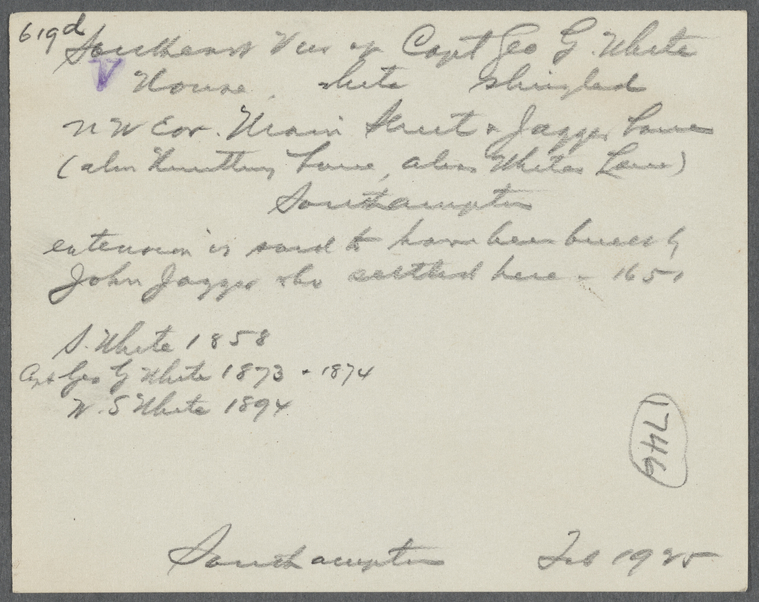 619d
Southeast View of Capt Geo G. White
House, white shingled
NW Cor. Main Street & Jagger Lane
(also Huntting Lane, also Whites Lane)
Southampton
extension is said to have been built by
John Jagger who settled here - 1651
S. White 1858
Capt Geo G White 1873 - 1874
W. S White 1894
1746
Southampton Feb 1925